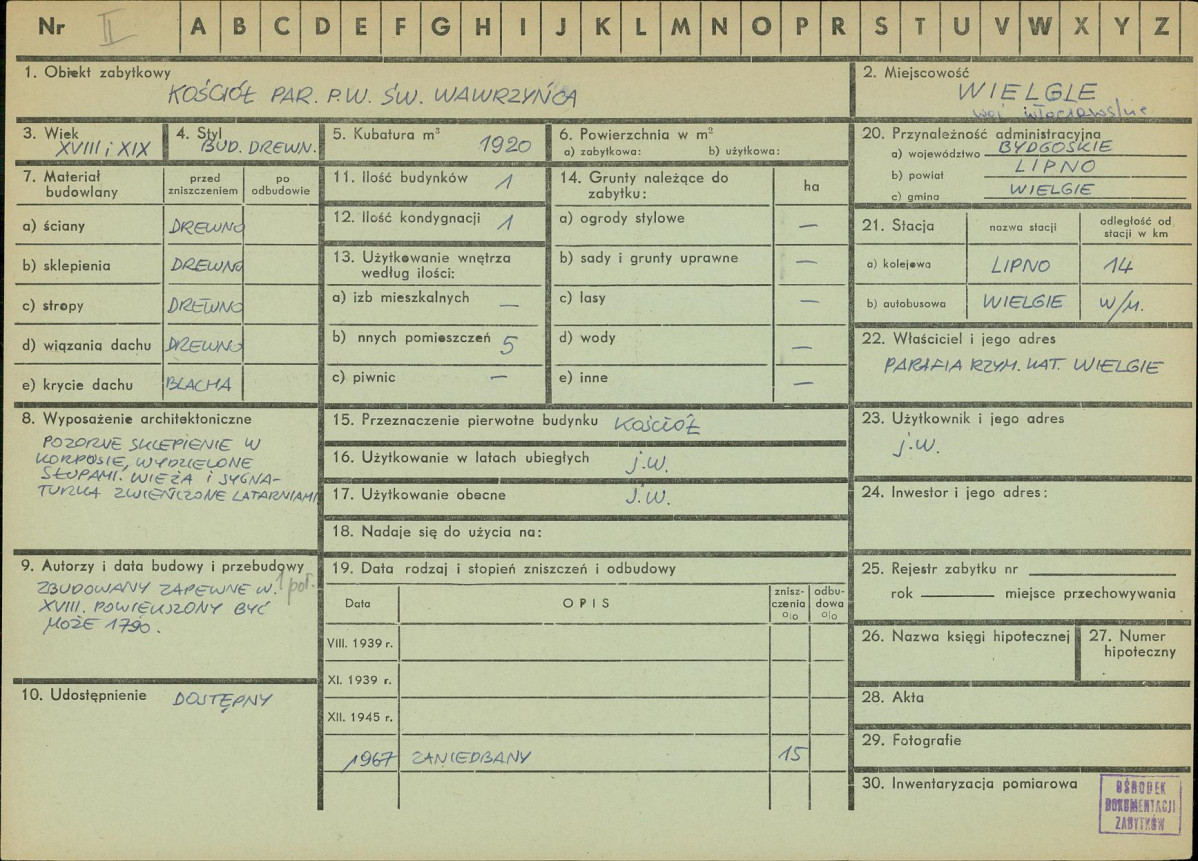 Nr II A B C D E F G H I J K L M N O P R S T U V W X Y Z
1. Obiekt zabytkowy
KOŚCIÓŁ PAR. P.W. ŚW. WAWRZYŃCA
2. Miejscowość
WIELGIE
woj włocławskie
3. Wiek
XVIII i XIX
4. Styl
BUD. DREWN.
5. Kubatura m³
1920
6. Powierzchnia w m²
a) zabytkowa: b) użytkowa:
7. Materiał budowlany
przed zniszczeniem
po odbudowie
a) ściany DREWNO
b) sklepienia DREWNO
c) stropy DREWNO
d) wiązania dachu DREWNO
e) krycie dachu BLACHA
8. Wyposażenie architektoniczne
POZORNE SKLEPIENIE W
KORPUSIE, WYDZIELONE
SŁUPAMI. WIEŻA I SYGNA-
TURKA ZWIEŃCZONE LATARNIAMI
9. Autorzy i data budowy i przebudowy
ZBUDOWANY ZAPEWNE W. 1 poł.
XVIII. POWIĘKSZONY BYĆ
MOŻE 1790.
10. Udostępnienie DOSTĘPNY
11. Ilość budynków 1
12. Ilość kondygnacji 1
13. Użytkowanie wnętrza
według ilości:
a) izb mieszkalnych —
b) nnych pomieszczeń 5
c) piwnic —
14. Grunty należące do
zabytku:
ha
a) ogrody stylowe —
b) sady i grunty uprawne —
c) lasy —
d) wody —
e) inne —
15. Przeznaczenie pierwotne budynku KOŚCIÓŁ
16. Użytkowanie w latach ubiegłych j.w.
17. Użytkowanie obecne J.W.
18. Nadaje się do użycia na:
19. Data rodzaj i stopień zniszczeń i odbudowy
Data OPIS
znisz-
czenia
o/o
odbu-
dowa
o/o
VIII. 1939 r.
XI. 1939 r.
XII. 1945 r.
1967 ZANIEDBANY 15
20. Przynależność administracyjna
a) województwo BYDGOSKIE
b) powiat LIPNO
c) gmina WIELGIE
21. Stacja
nazwa stacji
odległość od
stacji w km
a) kolejowa LIPNO 14
b) autobusowa WIELGIE w/m.
22. Właściciel i jego adres
PARAFIA RZYM. KAT. WIELGIE
23. Użytkownik i jego adres
j.w.
24. Inwestor i jego adres:
25. Rejestr zabytku nr
rok miejsce przechowywania
26. Nazwa księgi hipotecznej
27. Numer
hipoteczny
28. Akta
29. Fotografie
30. Inwentaryzacja pomiarowa
OŚRODEK
DOKUMENTACJI
ZABYTKÓW